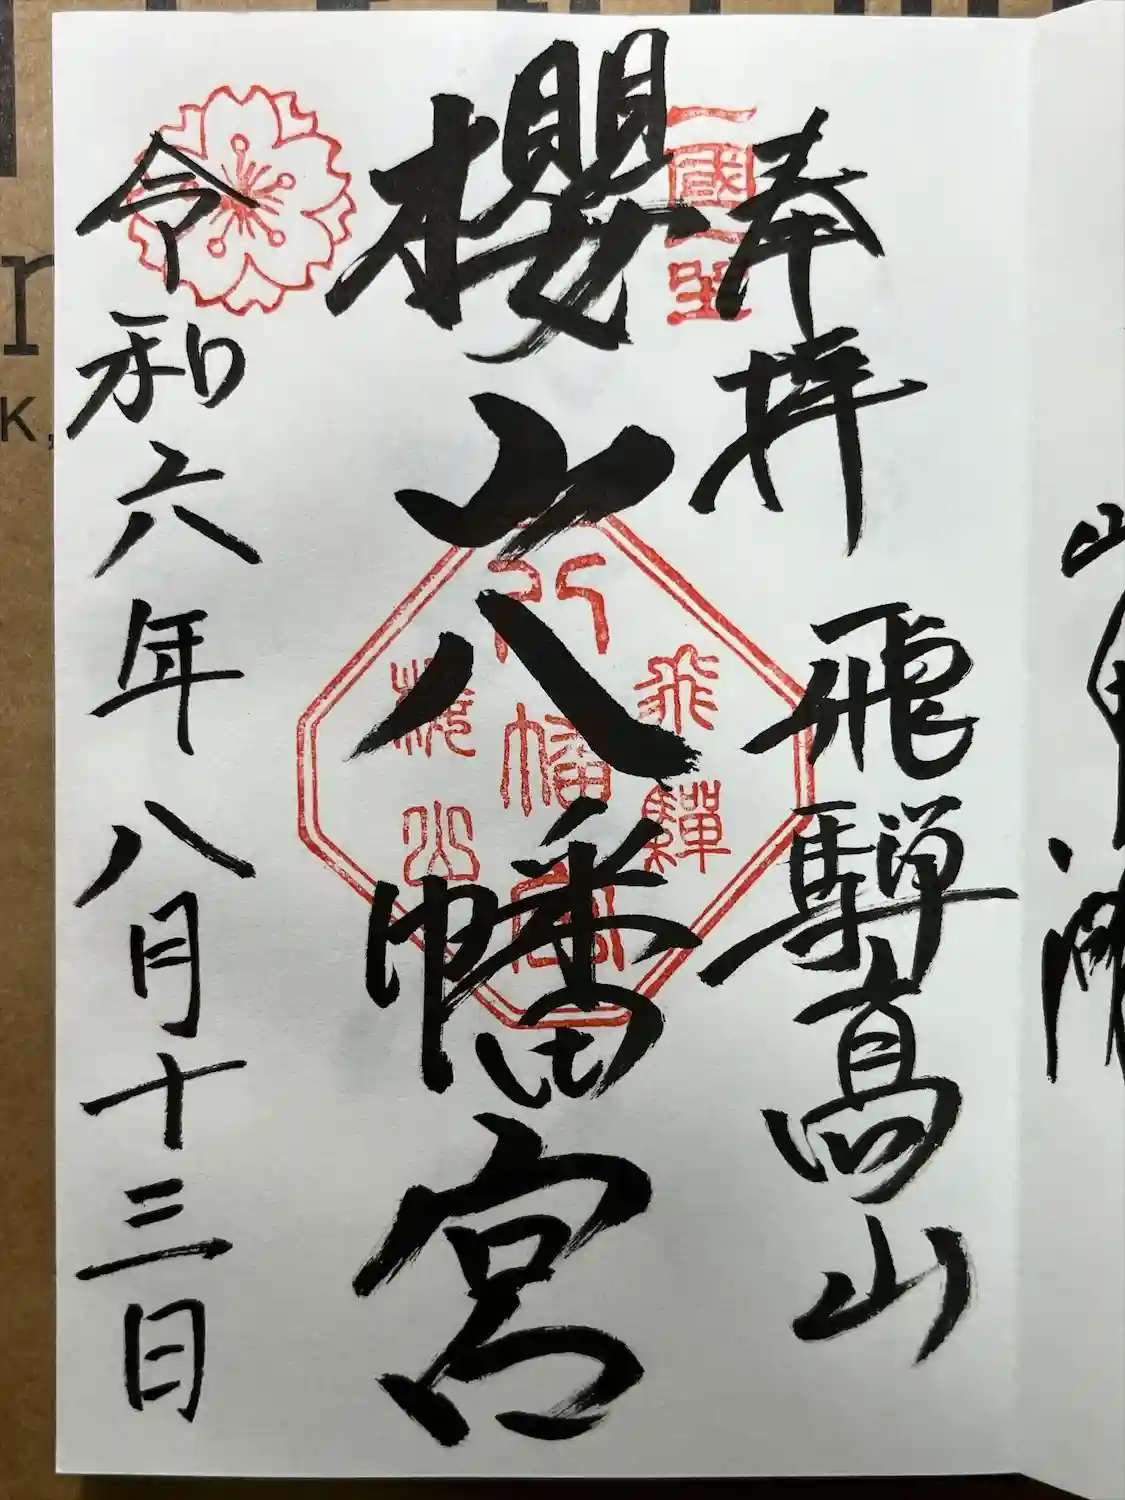 奉拝 飛騨高山
一國一社
櫻山八幡宮
飛驒
八幡宮
櫻山
令和六年八月十三日